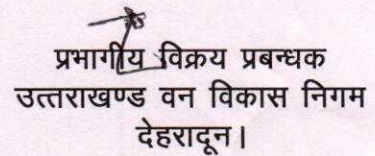 प्रभागीय विक्रय प्रबन्धक
उत्तराखण्ड वन विकास निगम
देहरादून।